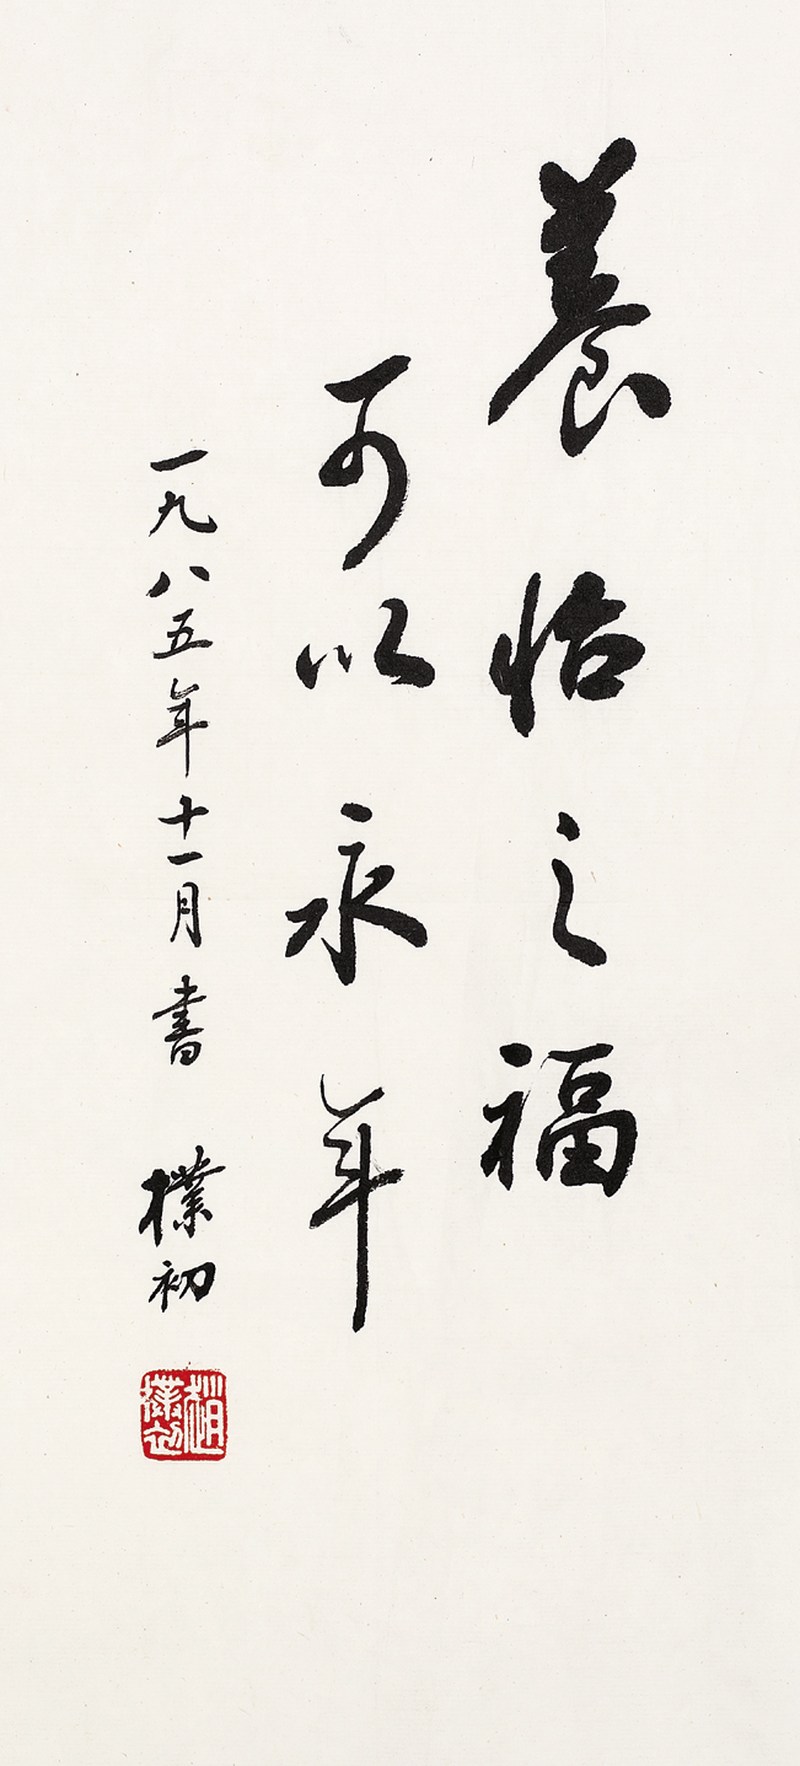 養怡之福
可以永年
一九八五年十一月書 樸初
趙樸初